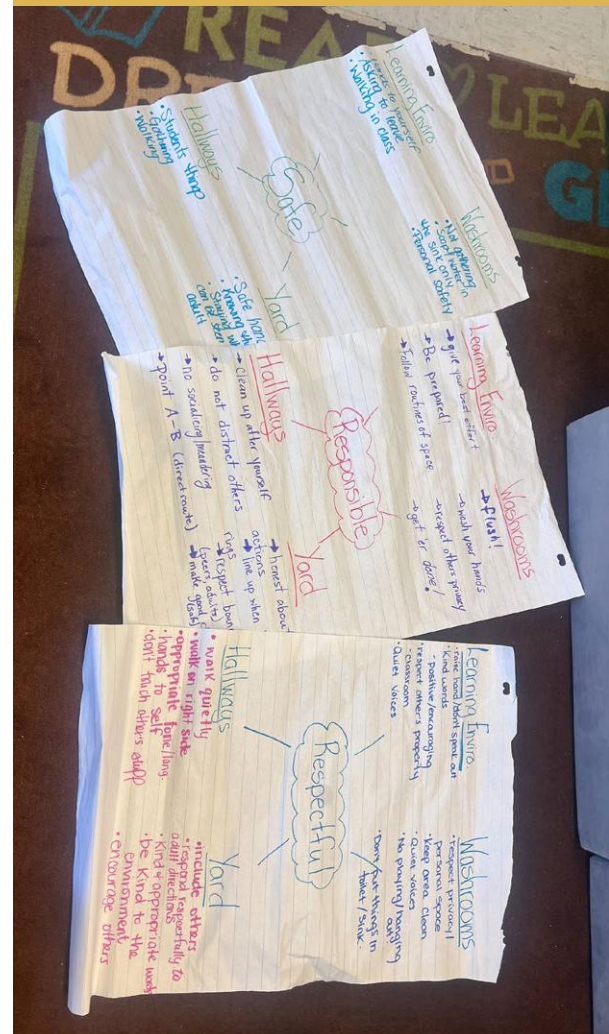 READ
LEA
DR
GR
Learning Enviro
to yourself
• Asking to leave
• Walking in class
Washrooms
• Not gathering
• Soap/water in
the sink only
• Personal safety
Safe
Hallways
• Students things
• Gathering
• Walking
Yard
• Safe hand
• Knowing
• Staying
can be seen
adult
Learning Enviro
→ give your best effort
→ Be prepared!
→ Follow routines of space
Washrooms
→ flush!
→ wash your hands
→ respect others privacy
→ get 'er done!
Responsible
Hallways
→ clean up after yourself
→ do not distract others
→ no socializing/meandering
→ Point A-B (direct route)
Yard
→ honest about
actions
→ line up when
rings
→ respect boun
(peers, adults)
→ make good
(safe)
Learning Enviro.
• raise hand/don't speak out
• Kind words
- positive/encouraging
• respect others property
- classroom
• Quiet voices
Washrooms
• respect privacy/
personal space
• Keep area clean
• Quiet voices
• No playing/hanging
out
• Don't put things in
toilet/sink
Respectful
Hallways
• walk quietly
• walk on right side
• appropriate tone/lang.
• hands to self
• don't touch others stuff
Yard
• include others
• respond respectfully to
adult directions
• Kind & appropriate words
• be kind to the
environment
• encourage others